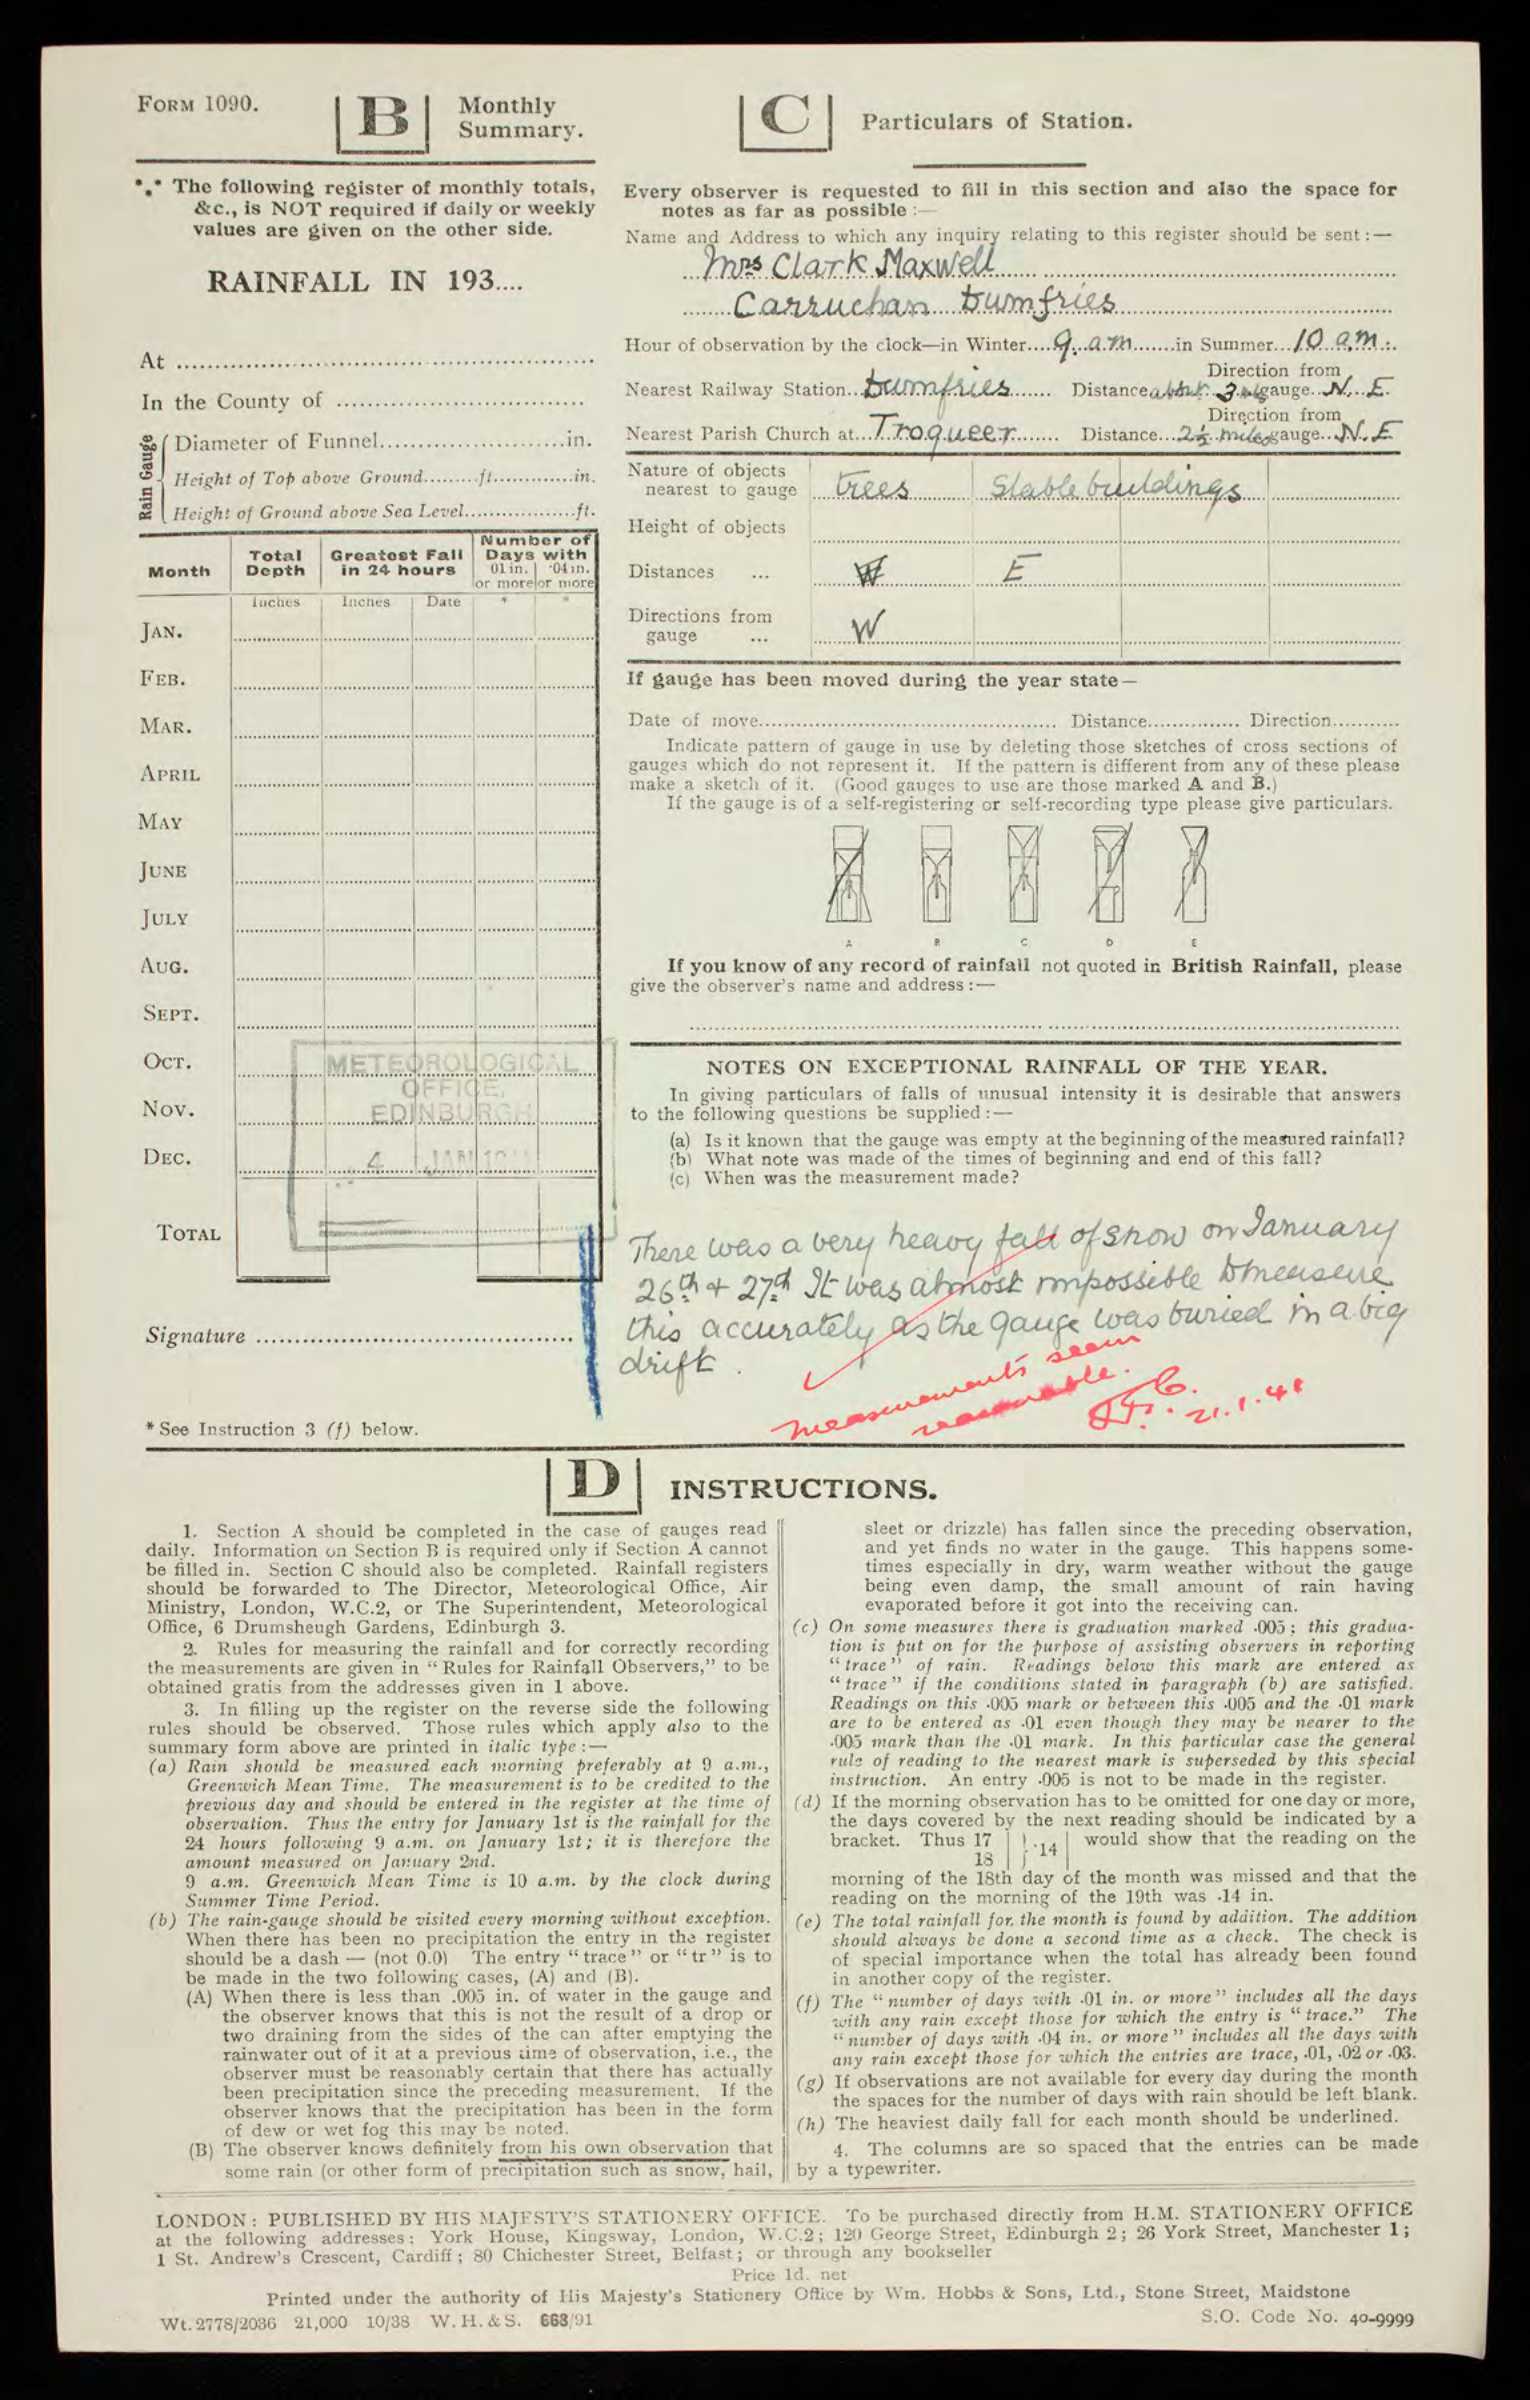 FORM 1090.
B
Monthly
Summary.
*.* The following register of monthly totals,
&c., is NOT required if daily or weekly
values are given on the other side.
RAINFALL IN 193....
At
In the County of
Rain Gauge
Diameter of Funnel in.
Height of Top above Ground ft. in.
Height of Ground above Sea Level ft.
Month
Total Depth
Greatest Fall in 24 hours
Number of Days with
·01 in. or more
·04 in. or more
Inches Inches Date * *
JAN.
FEB.
MAR.
APRIL
MAY
JUNE
JULY
AUG.
SEPT.
OCT.
NOV.
DEC.
TOTAL
METEOROLOGICAL
OFFICE,
EDINBURGH
4 JAN
Signature
* See Instruction 3 (f) below.
C
Particulars of Station.
Every observer is requested to fill in this section and also the space for
notes as far as possible :—
Name and Address to which any inquiry relating to this register should be sent :—
Mrs Clark Maxwell
Carruchan Dumfries
Hour of observation by the clock—in Winter 9. a.m in Summer 10 a.m.
Direction from
Nearest Railway Station Dumfries Distance about 3 mls gauge N. E.
Direction from
Nearest Parish Church at Troqueer Distance 2½ miles gauge N. E
Nature of objects
nearest to gauge Trees Stable buildings
Height of objects
Distances ... W E
Directions from
gauge ... W
If gauge has been moved during the year state—
Date of move Distance Direction
Indicate pattern of gauge in use by deleting those sketches of cross sections of
gauges which do not represent it. If the pattern is different from any of these please
make a sketch of it. (Good gauges to use are those marked A and B.)
If the gauge is of a self-registering or self-recording type please give particulars.
A B C D E
If you know of any record of rainfall not quoted in British Rainfall, please
give the observer's name and address :—
NOTES ON EXCEPTIONAL RAINFALL OF THE YEAR.
In giving particulars of falls of unusual intensity it is desirable that answers
to the following questions be supplied :—
(a) Is it known that the gauge was empty at the beginning of the measured rainfall?
(b) What note was made of the times of beginning and end of this fall?
(c) When was the measurement made?
There was a very heavy fall of snow on January
26th + 27th It was almost impossible to measure
this accurately as the gauge was buried in a big
drift.
measurements seem
reasonable.
21.1.41
D
INSTRUCTIONS.
1. Section A should be completed in the case of gauges read
daily. Information on Section B is required only if Section A cannot
be filled in. Section C should also be completed. Rainfall registers
should be forwarded to The Director, Meteorological Office, Air
Ministry, London, W.C.2, or The Superintendent, Meteorological
Office, 6 Drumsheugh Gardens, Edinburgh 3.
2. Rules for measuring the rainfall and for correctly recording
the measurements are given in "Rules for Rainfall Observers," to be
obtained gratis from the addresses given in 1 above.
3. In filling up the register on the reverse side the following
rules should be observed. Those rules which apply also to the
summary form above are printed in italic type :—
(a) Rain should be measured each morning preferably at 9 a.m.,
Greenwich Mean Time. The measurement is to be credited to the
previous day and should be entered in the register at the time of
observation. Thus the entry for January 1st is the rainfall for the
24 hours following 9 a.m. on January 1st; it is therefore the
amount measured on January 2nd.
9 a.m. Greenwich Mean Time is 10 a.m. by the clock during
Summer Time Period.
(b) The rain-gauge should be visited every morning without exception.
When there has been no precipitation the entry in the register
should be a dash — (not 0.0) The entry "trace" or "tr" is to
be made in the two following cases, (A) and (B).
(A) When there is less than .005 in. of water in the gauge and
the observer knows that this is not the result of a drop or
two draining from the sides of the can after emptying the
rainwater out of it at a previous time of observation, i.e., the
observer must be reasonably certain that there has actually
been precipitation since the preceding measurement. If the
observer knows that the precipitation has been in the form
of dew or wet fog this may be noted.
(B) The observer knows definitely from his own observation that
some rain (or other form of precipitation such as snow, hail,
sleet or drizzle) has fallen since the preceding observation,
and yet finds no water in the gauge. This happens some-
times especially in dry, warm weather without the gauge
being even damp, the small amount of rain having
evaporated before it got into the receiving can.
(c) On some measures there is graduation marked .005; this gradua-
tion is put on for the purpose of assisting observers in reporting
"trace" of rain. Readings below this mark are entered as
"trace" if the conditions stated in paragraph (b) are satisfied.
Readings on this .005 mark or between this .005 and the .01 mark
are to be entered as .01 even though they may be nearer to the
.005 mark than the .01 mark. In this particular case the general
rule of reading to the nearest mark is superseded by this special
instruction. An entry .005 is not to be made in the register.
(d) If the morning observation has to be omitted for one day or more,
the days covered by the next reading should be indicated by a
bracket. Thus 17 } .14 would show that the reading on the
18
morning of the 18th day of the month was missed and that the
reading on the morning of the 19th was .14 in.
(e) The total rainfall for the month is found by addition. The addition
should always be done a second time as a check. The check is
of special importance when the total has already been found
in another copy of the register.
(f) The "number of days with .01 in. or more" includes all the days
with any rain except those for which the entry is "trace." The
"number of days with .04 in. or more" includes all the days with
any rain except those for which the entries are trace, .01, .02 or .03.
(g) If observations are not available for every day during the month
the spaces for the number of days with rain should be left blank.
(h) The heaviest daily fall for each month should be underlined.
4. The columns are so spaced that the entries can be made
by a typewriter.
LONDON: PUBLISHED BY HIS MAJESTY'S STATIONERY OFFICE. To be purchased directly from H.M. STATIONERY OFFICE
at the following addresses: York House, Kingsway, London, W.C.2; 120 George Street, Edinburgh 2; 26 York Street, Manchester 1;
1 St. Andrew's Crescent, Cardiff; 80 Chichester Street, Belfast; or through any bookseller
Price 1d. net
Printed under the authority of His Majesty's Stationery Office by Wm. Hobbs & Sons, Ltd., Stone Street, Maidstone
Wt. 2778/2036 21,000 10/38 W. H. & S. 668/91
S.O. Code No. 40-9999